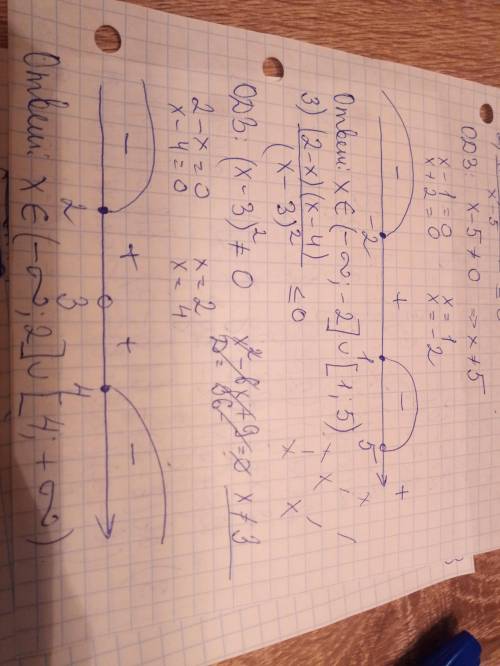 x-5 ≤ 0
ОДЗ: x-5≠0 ⇒ x≠5
x-1=0 x=1
x+2=0 x=-2
- -2 + 1 - 5 +
Ответ: x∈(-∞;-2]∪[1;5)
3) (2-x)(x-4)
(x-3)² ≤0
ОДЗ: (x-3)²≠0 x²-6x+9=0 x≠3
2-x=0 x=2
x-4=0 x=4
- 2 + 3 + 4 -
Ответ: x∈(-∞;2]∪[4;+∞)